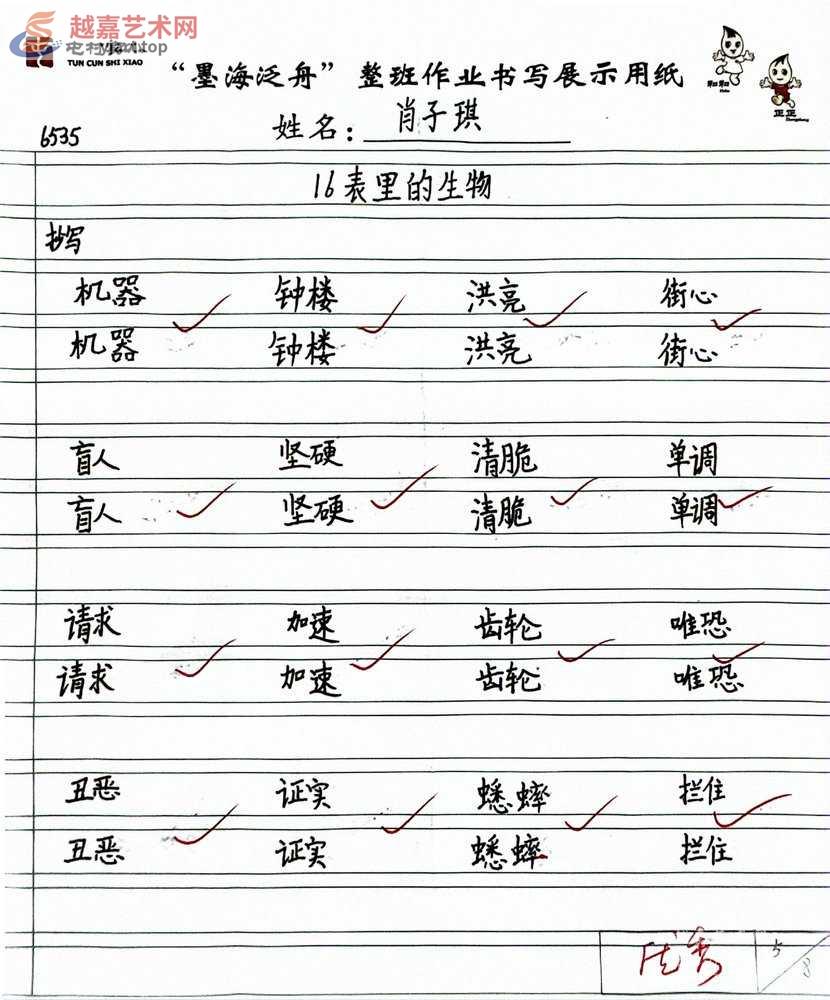 越嘉艺术网
TUN CUN SHI XIAO
“墨海泛舟”整班作业书写展示用纸
和和
正正
6535
姓名：肖子琪
16表里的生物
抄写
机器 钟楼 洪亮 街心
机器 钟楼 洪亮 街心
盲人 坚硬 清脆 单调
盲人 坚硬 清脆 单调
请求 加速 齿轮 唯恐
请求 加速 齿轮 唯恐
丑恶 证实 蟋蟀 拦住
丑恶 证实 蟋蟀 拦住
优秀 5/8